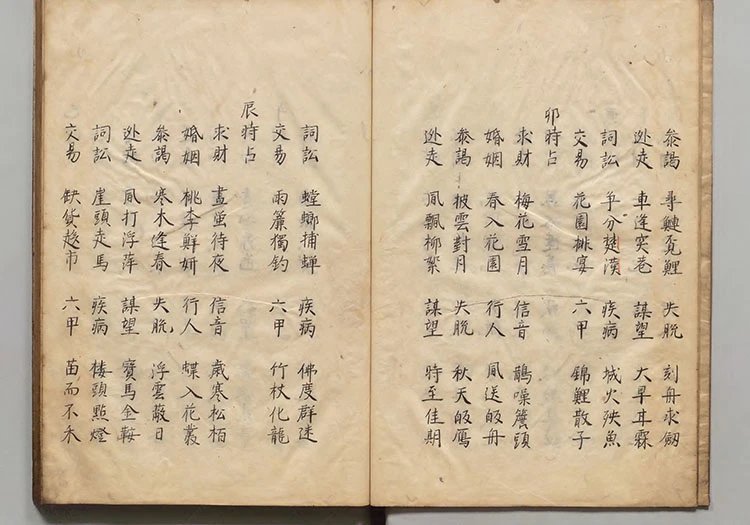 叅謁 尋鰱覓鯉 失脫 刻舟求劒
逃走 車逢突巷 謀望 大旱甘霖
詞訟 爭分楚漢 疾病 城火殃魚
交易 花園排宴 六甲 錦鯉散子
卯時占
求財 梅花雪月 信音 鵲噪簷頭
婚姻 春入花園 行人 風送皈舟
叅謁 披雲對月 失脫 秋天皈鴈
逃走 風飄柳絮 謀望 時至佳期
詞訟 螳螂捕蟬 疾病 佛度群迷
交易 雨簾獨釣 六甲 竹杖化龍
辰時占
求財 晝螢待夜 信音 歲寒松柏
婚姻 桃李鮮妍 行人 蝶入花叢
叅謁 寒木逢春 失脫 浮雲散日
逃走 風打浮萍 謀望 寶馬金鞍
詞訟 崖頭走馬 疾病 楼頭點燈
交易 缺貨趍市 六甲 苗而不禾